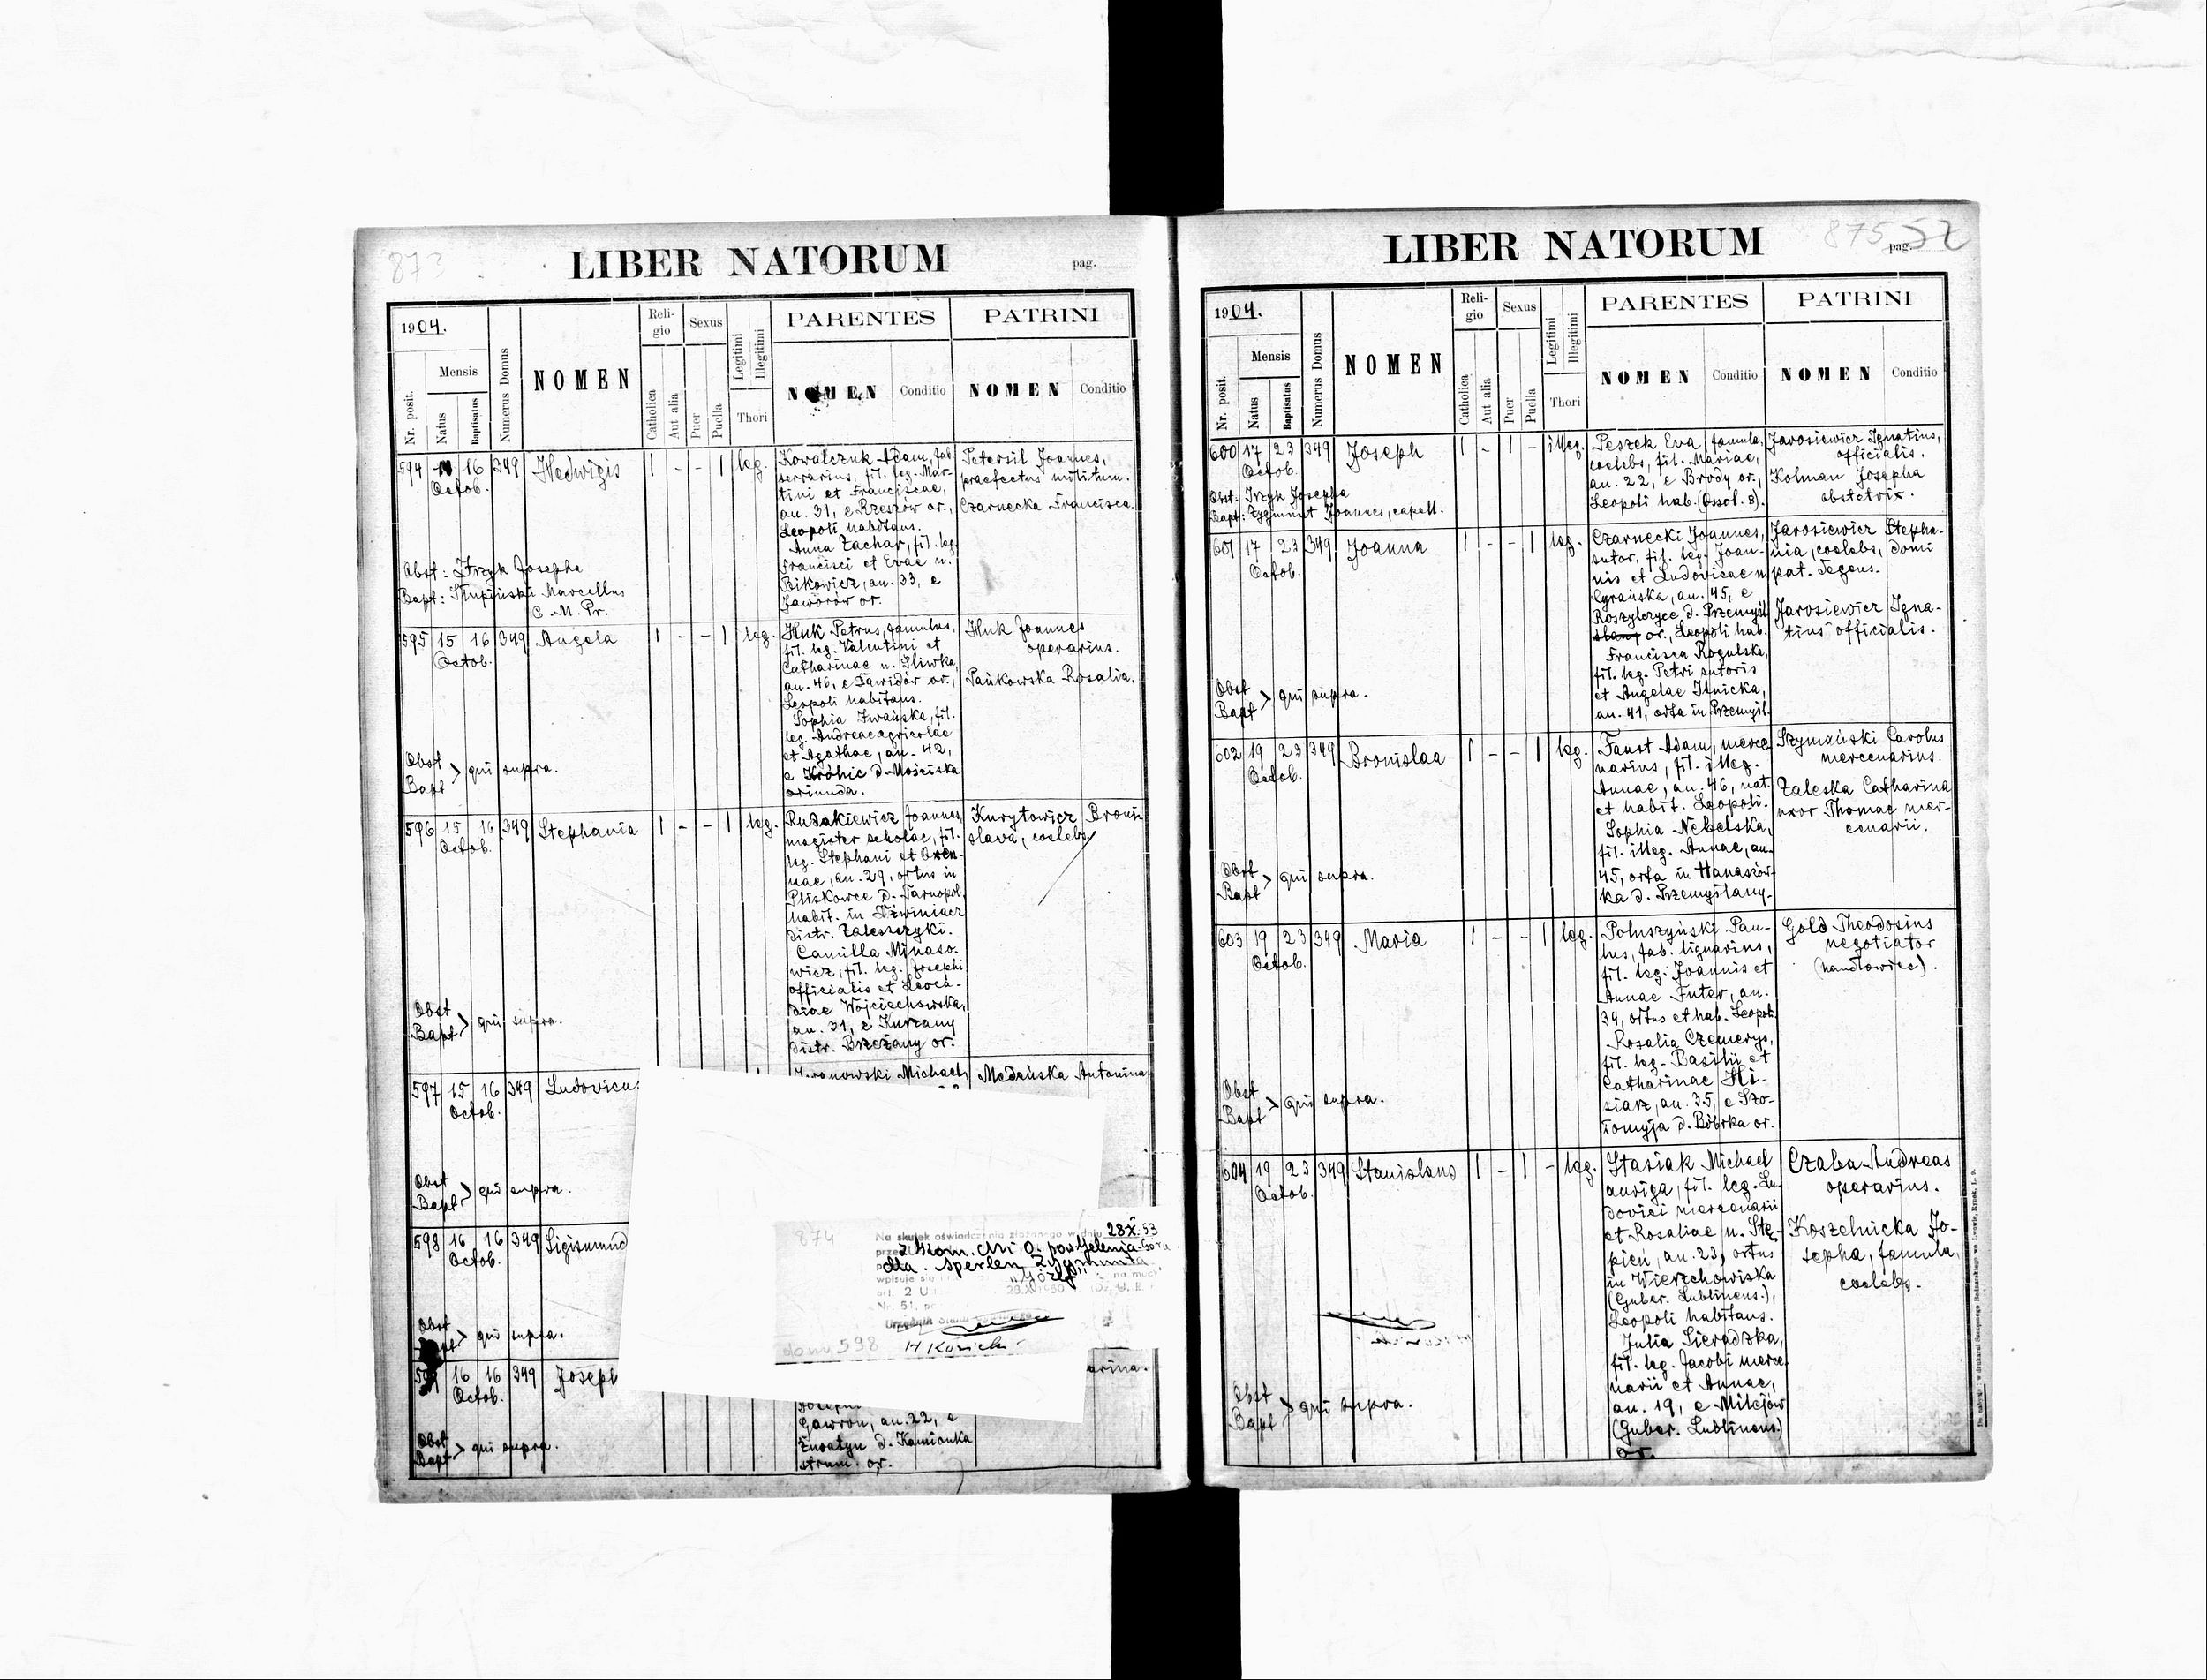 873
LIBER NATORUM
pag.
1904.
Nr. posit.
Mensis
Natus
Baptisatus
Numerus Domus
NOMEN
Religio
Catholica
Aut alia
Sexus
Puer
Puella
Legitimi
Illegitimi
Thori
PARENTES
NOMEN
Conditio
PATRINI
NOMEN
Conditio
594 16 349 Hedwigis 1 - - 1 leg.
Octob.
Kowalczuk Adam, fab.
ferrarius, fil. leg. Mar-
tini et Franciscae,
an. 31, e Rzeszów or.,
Leopoli habitans.
Anna Zachar, fil. leg.
Francisci et Evae n.
Bikowicz, an. 33, e
Jaworów or.
Petersil Joannes,
praefectus militum.
Czarnecka Francisca.
Obst: Jrzyk Josepha
Bapt: Słupiński Marcellus
C. M. Pr.
595 15 16 349 Angela 1 - - 1 leg.
Octob.
Huk Petrus, famulus,
fil. leg. Valentini et
Catharinae n. Sliwka,
an. 46, e Dawidów or.,
Leopoli habitans.
Sophia Iwańska, fil.
leg. Andreae agricolae
et Agathae, an. 42,
e Króhic d. Mościska
oriunda.
Huk Joannes
operarius.
Pańkowska Rosalia.
Obst
Bapt > qui supra.
596 15 16 349 Stephania 1 - - 1 leg.
Octob.
Rudakiewicz Joannes,
magister scholae, fil.
leg. Stephani et Oxen-
nae, an. 29, ortus in
Pliskowce d. Tarnopol,
habit. in Dźwiniacz
distr. Zaleszczyki.
Camilla Minaso-
wicz, fil. leg. Josephi
officialis et Leoca-
diae Wojciechowska,
an. 31, e Kurzany
distr. Brzeżany or.
Kurytowicz Broni-
slava, coelebs
Obst
Bapt > qui supra.
597 15 16 349 Ludovicus
Octob.
Michael,
Medeńska Antonina
Obst
Bapt > qui supra.
598 16 16 349 Sigismund
Octob.
874
Na skutek oświadczenia złożonego w dniu 28X.53
z Kom. dni O. pow. Jelenia-Góra
dla Sperlen Zygmunta
"Józef"
wpisuje się
na mocy
art. 2
28.X.1950
Nr. 51,
H Kozicki
do nr. 598
Obst
Bapt > qui supra.
16 16 349 Joseph
Octob.
arina.
Gawron, an. 22, e
Żuratyn d. Kamionka
strum. or.
Obst
Bapt > qui supra.
875 52
LIBER NATORUM
pag.
1904.
Nr. posit.
Mensis
Natus
Baptisatus
Numerus Domus
NOMEN
Religio
Catholica
Aut alia
Sexus
Puer
Puella
Legitimi
Illegitimi
Thori
PARENTES
NOMEN
Conditio
PATRINI
NOMEN
Conditio
600 17 23 349 Joseph 1 - 1 - illeg.
Octob.
Peszek Eva, famula,
coelebs, fil. Mariae,
an. 22, e Brody or.,
Leopoli hab. (Ossol. 8).
Jarosiewicz Ignatius,
officialis.
Kolman Josepha
obstetrix.
Obst: Jrzyk Josepha
Bapt: Zygmunt Joannes, capell.
601 17 23 349 Joanna 1 - - 1 leg.
Octob.
Czarnecki Joannes,
sutor, fil. leg. Joan-
nis et Ludovicae n.
Cyrańska, an. 45, e
Roszyczyce d. Przemyśl
or., Leopoli hab.
Francisca Rogulska,
fil. leg. Petri sutoris
et Angelae Ilnicka,
an. 41, orta in Przemyśl.
Jarosiewicz Stepha-
nia, coelebs, domi
pat. degens.
Jarosiewicz Igna-
tius officialis.
Obst
Bapt > qui supra.
602 19 23 349 Bronislaa 1 - - 1 leg.
Octob.
Faust Adam, merce-
narius, fil. illeg.
Annae, an. 46, nat.
et habit. Leopoli.
Sophia Nebelska,
fil. illeg. Annae, an.
45, orta in Hanaszów-
ka d. Przemyślany.
Szymański Carolus
mercenarius.
Zaleska Catharina
uxor Thomae mer-
cenarii.
Obst
Bapt > qui supra.
603 19 23 349 Maria 1 - - 1 leg.
Octob.
Poluszyński Pau-
lus, fab. lignarius,
fil. leg. Joannis et
Annae Futer, an.
34, ortus et hab. Leopoli
Rosalia Czemerys,
fil. leg. Basilii et
Catharinae Hi-
siarz, an. 35, e Szo-
łomyja d. Bóbrka or.
Gold Theodosius
negotiator
(handlowiec).
Obst
Bapt > qui supra.
604 19 23 349 Stanislaus 1 - 1 - leg.
Octob.
Stasiak Michael
auriga, fil. leg. Lu-
dovici mercenarii
et Rosaliae n. Stę-
pień, an. 23, ortus
in Wierzchowiska
(Guber. Lublinens.),
Leopoli habitans.
Julia Sieradzka,
fil. leg. Jacobi merce-
narii et Annae,
an. 19, e Milejów
(Guber. Lublinens.)
or.
Czaba Andreas
operarius.
Koszelnicka Jo-
sepha, famula,
coelebs.
Obst
Bapt > qui supra.